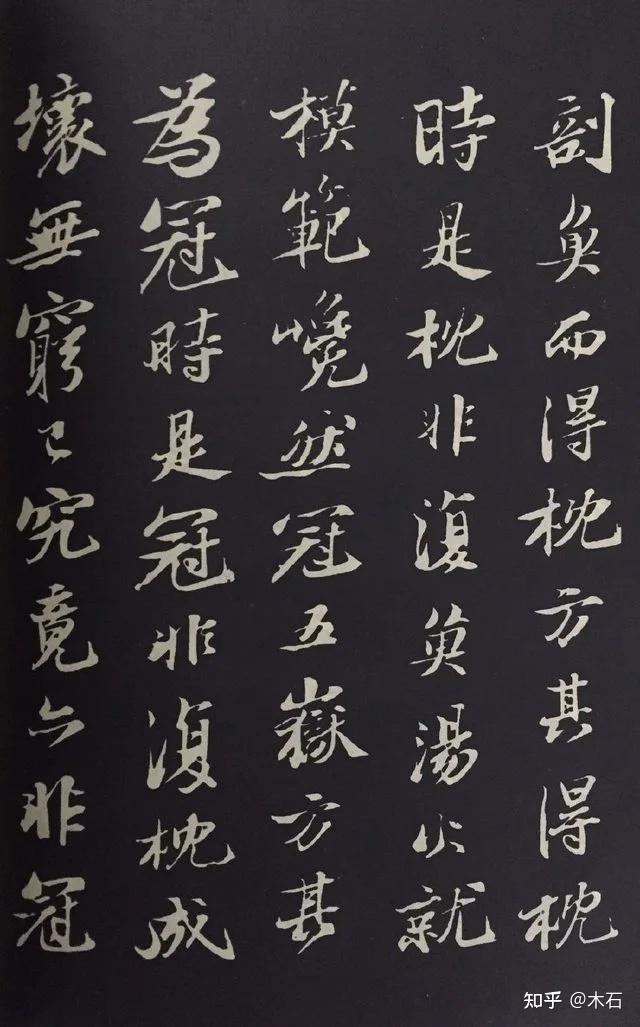 剖魚而得枕方其得枕
時是枕非復魚湯火就
模範巉然冠五嶽方其
為冠時是冠非復枕成
壞無窮已究竟亦非冠
知乎 @木石